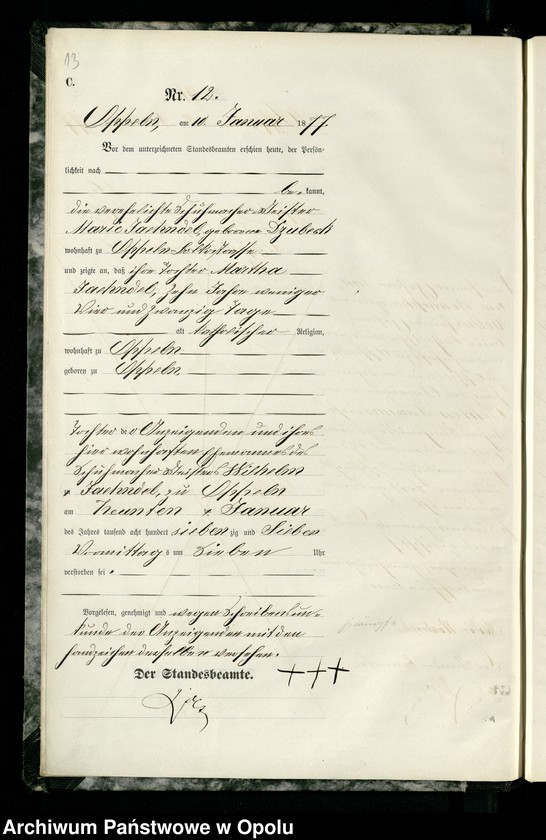 13
C.
Nr. 12.
Oppeln, am 10. Januar 1877.
Vor dem unterzeichneten Standesbeamten erschien heute, der Persön-
lichkeit nach
be kannt,
die verehelichte Schuhmacher Meister
Marie Jaehndel, geborene Dzubeck
wohnhaft zu Oppeln
und zeigte an, daß ihre Tochter Martha
Jaehndel, Zehn Jahre weniger
Vier und Zwanzig Tage
alt katholischer Religion,
wohnhaft zu Oppeln
geboren zu Oppeln
Tochter der Anzeigenden und ihres
hier wohnhaften Ehemannes des
Schuhmacher Meisters Wilhelm
Jaehndel, zu Oppeln
am Neunten Januar
des Jahres tausend acht hundert siebenzig und Sieben
Vormittags um Sieben Uhr
verstorben sei.
Vorgelesen, genehmigt und wegen Schreibensun-
kunde der Anzeigenden mit den
Handzeichen derselben versehen.
Der Standesbeamte. +++
Archiwum Państwowe w Opolu